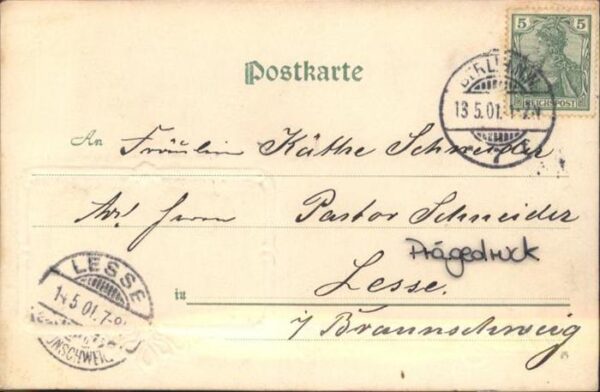 5 5
REICHSPOST
Postkarte
BERLIN N.W.
13 5.01.
7
An Fräulein Käthe Schneider
Adr. Herrn Pastor Schneider
Prägedruck
Lesse.
in
i/Braunschweig
LESSE
14 5 01. 7-